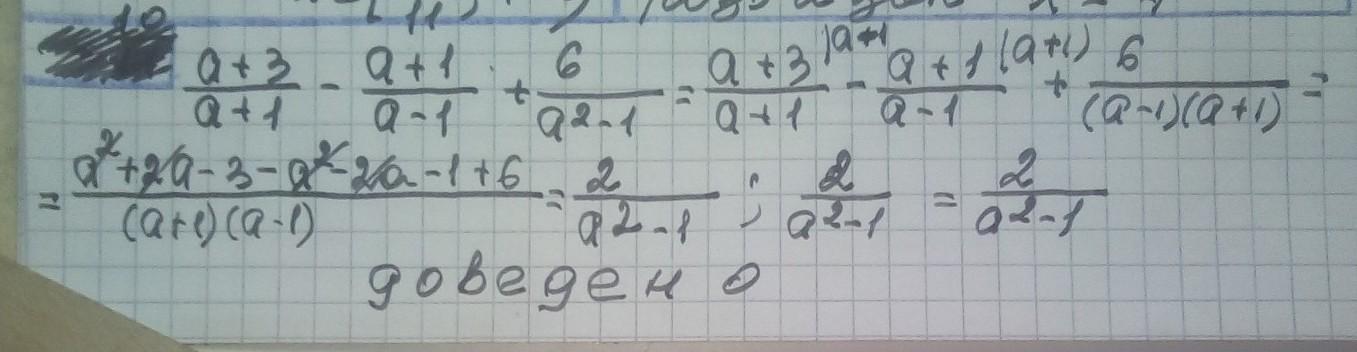 10
\frac{a+3}{a+1} - \frac{a+1}{a-1} + \frac{6}{a^2-1} = \frac{a+3}{a+1}^{)a+1} - \frac{a+1}{a-1}^{(a+1)} + \frac{6}{(a-1)(a+1)} =
= \frac{a^2+2a-3-a^2-2a-1+6}{(a+1)(a-1)} = \frac{2}{a^2-1} ; \frac{2}{a^2-1} = \frac{2}{a^2-1}
доведено